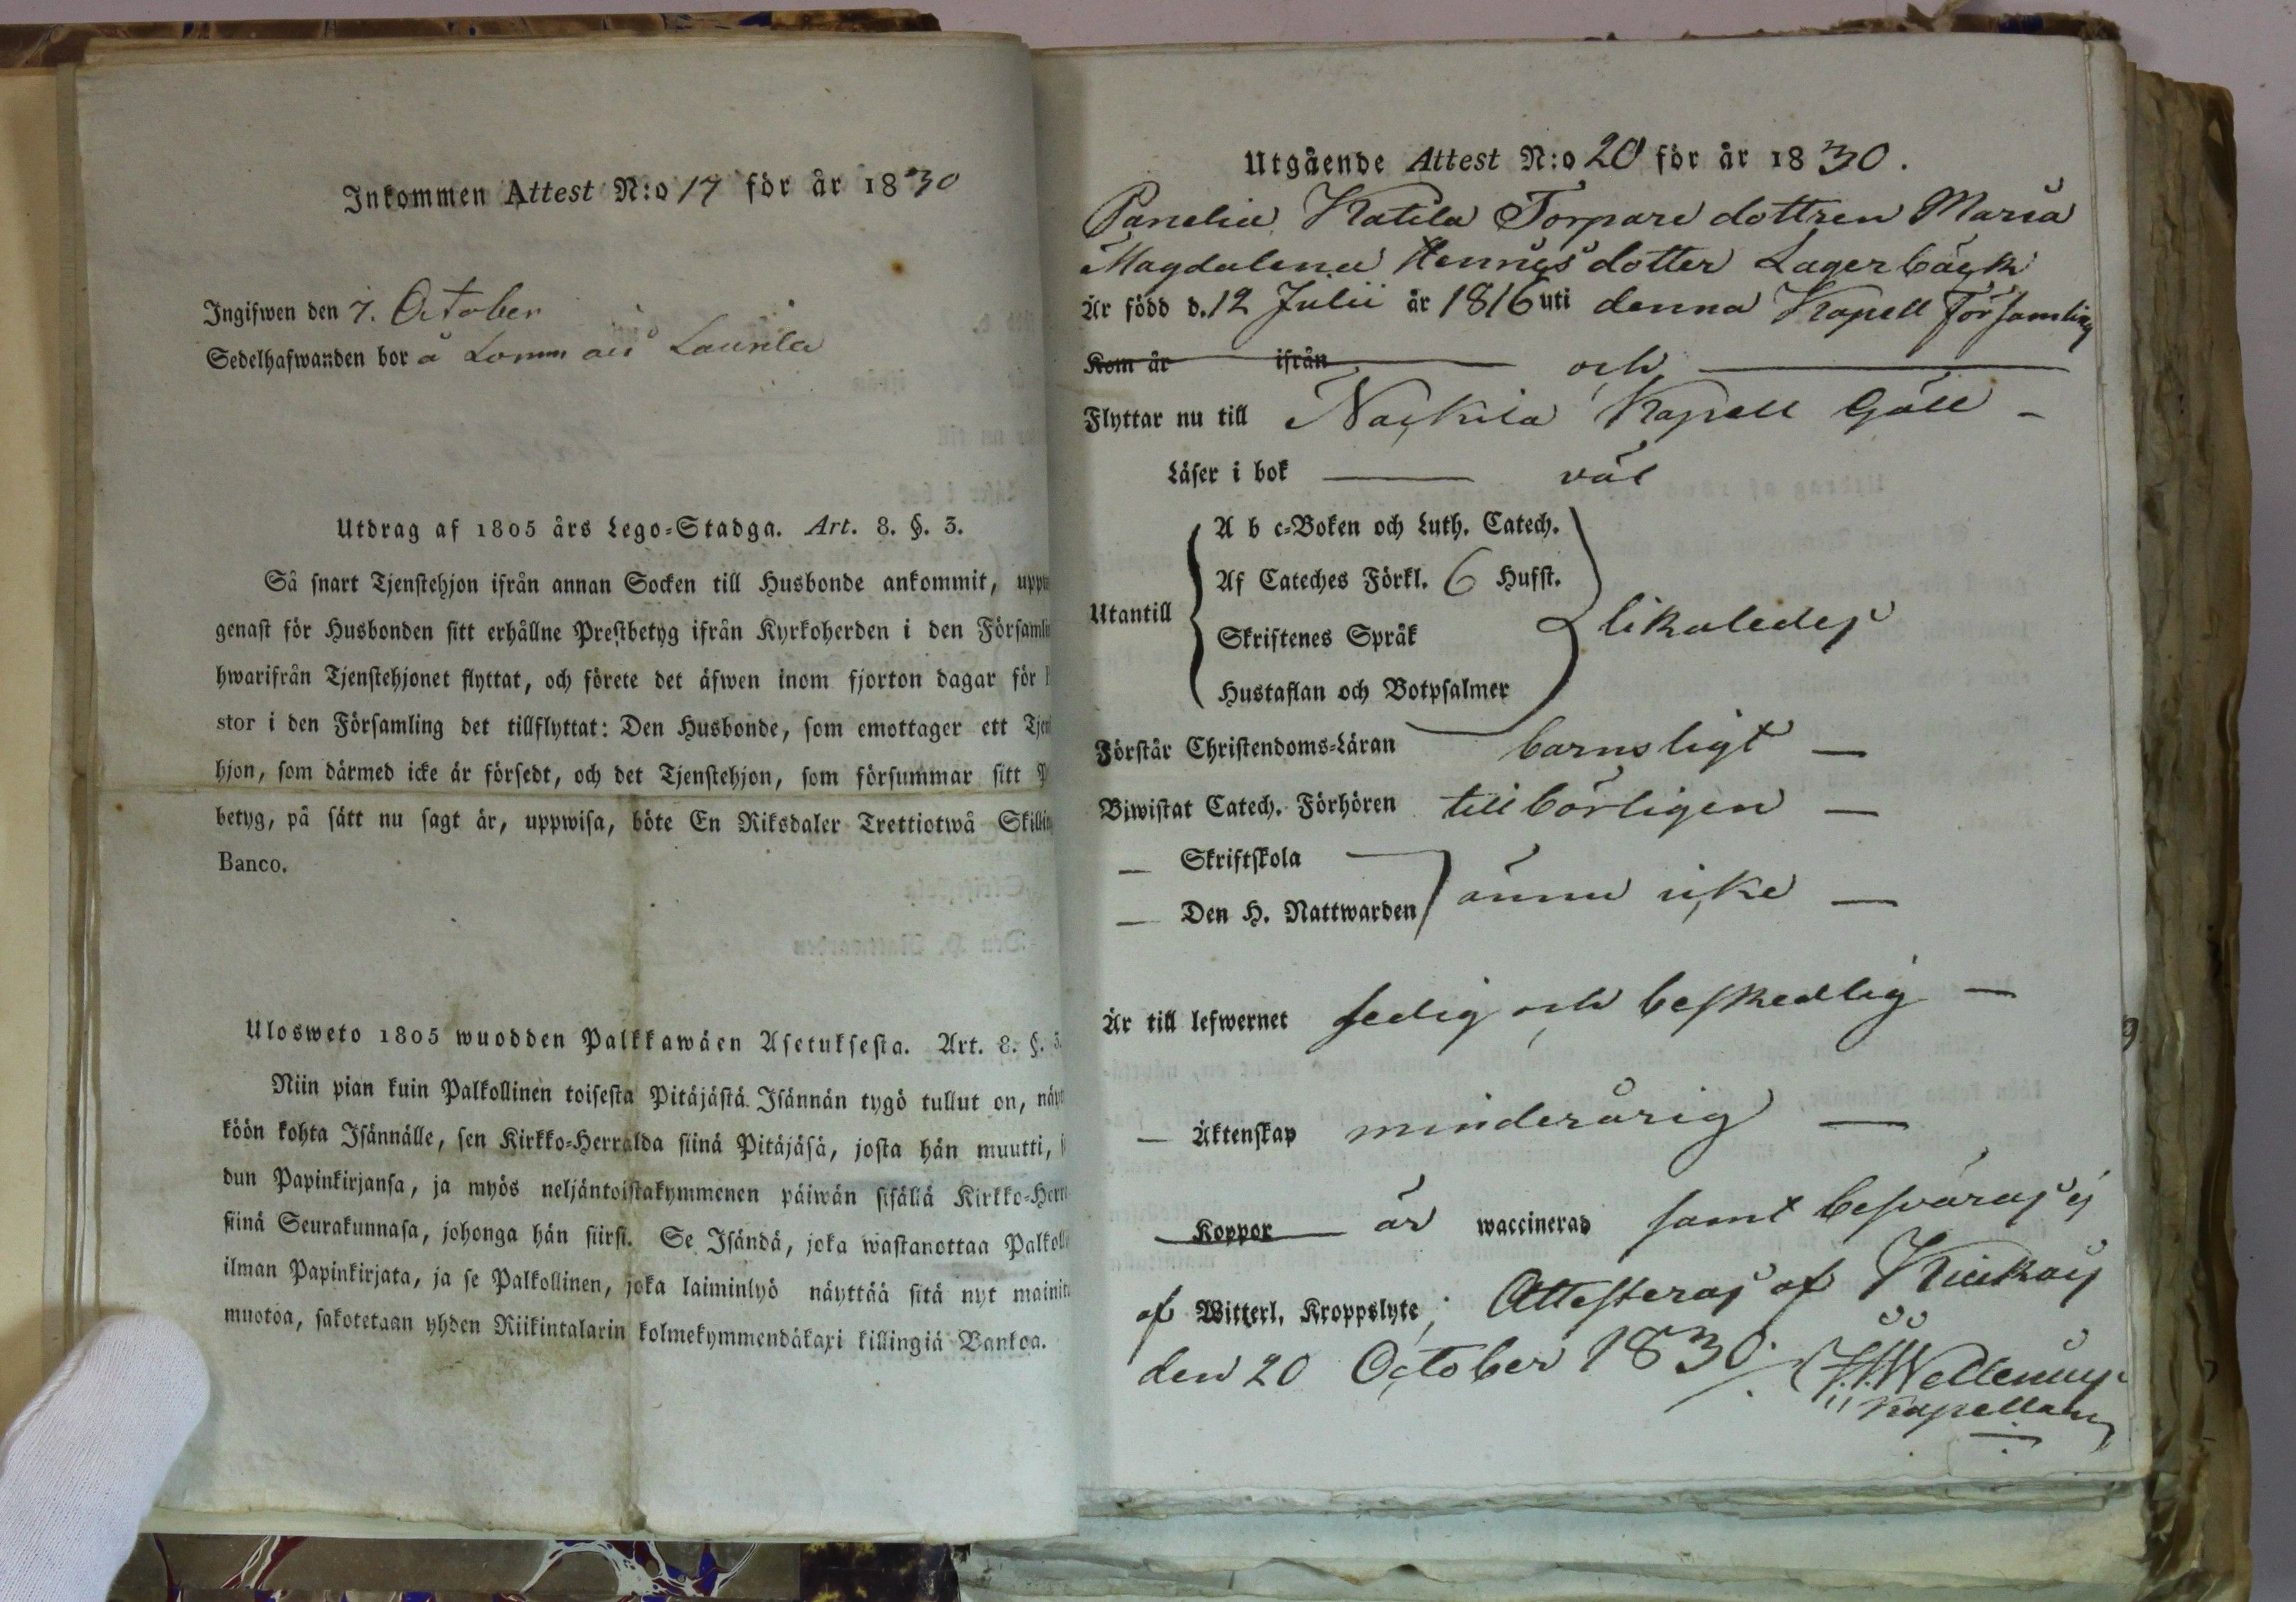 Inkommen Attest N:o 17 för år 1830
Ingifwen den 7. October
Sedelhafwanden bor å Lommais Laurila
Utdrag af 1805 års Lego-Stadga. Art. 8. §. 3.
Så snart Tjenstehjon ifrån annan Socken till Husbonde ankommit, upp
genast för Husbonden sitt erhållne Prestbetyg ifrån Kyrkoherden i den Församl
hwarifrån Tjenstehjonet flyttat, och förete det äfwen inom fjorton dagar för
stor i den Församling det tillflyttat: Den Husbonde, som emottager ett Tjen
hjon, som därmed icke är försedt, och det Tjenstehjon, som försummar sitt P
betyg, på sätt nu sagt är, uppwisa, böte En Riksdaler Trettiotwå Skillin
Banco.
Ulosweto 1805 wuodden Palkkawäen Asetuksesta. Art. 8. §. 3.
Niin pian kuin Palkollinen toisesta Pitäjästä Isännän tygö tullut on, näyt
köön kohta Isännälle, sen Kirkko-Herralda siinä Pitäjäsä, josta hän muutti, s
dun Papinkirjansa, ja myös neljäntoistakymmenen päiwän sisällä Kirkko-Herr
siinä Seurakunnasa, johonga hän siirsi. Se Isändä, joka wastanottaa Palkoll
ilman Papinkirjata, ja se Palkollinen, joka laiminlyö näyttää sitä nyt mainit
muotoa, sakotetaan yhden Riikintalarin kolmekymmendäkaxi killingiä Bankoa.
Utgående Attest N:o 20 för år 1830.
Panelia Katila Torpare dottren Maria
Magdalena Hennrics dotter Lagerbäck
Är född d. 12 Julii år 1816 uti denna Kapell Församling
Kom år ifrån och
Flyttar nu till Nackila Kapell Gäll –
Läser i bok väl
A b c-Boken och Luth. Catech.
Af Cateches Förkl. 6 Hufst.
Utantill likaledes
Skriftenes Språk
Hustaflan och Botpsalmer
Förstår Christendoms-Läran barnsligt –
Biwistat Catech. Förhören tillbörligen –
– Skriftskola
– Den H. Nattwarden ännu icke –
Är till lefwernet sedig och beskedlig –
– Äktenskap minderårig –
Koppor är waccinerad samt besväras ej
af Witterl. Kroppslyte; Attesteras af Kiukais
den 20 October 1830.
Kapellan